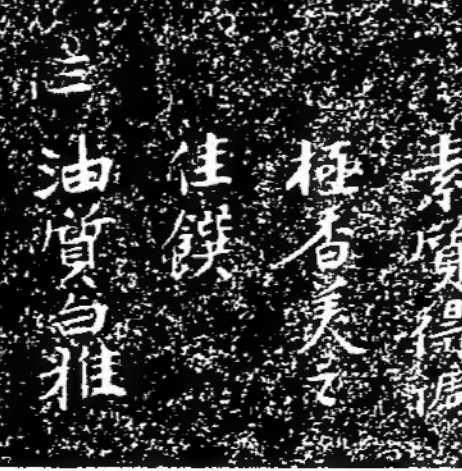 素質得儂
極香美之
佳饌
油質白雅